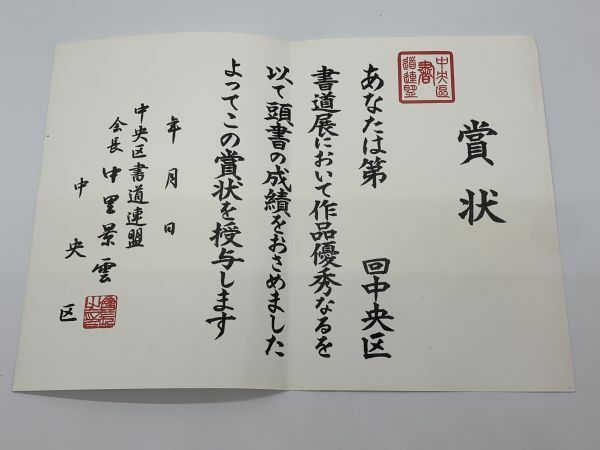 賞状
中央区
書
道連盟
あなたは第　回中央区
書道展において作品優秀なるを
以て頭書の成績をおさめました
よってこの賞状を授与します
年月日
中央区書道連盟
会長 中里景雲
中央区